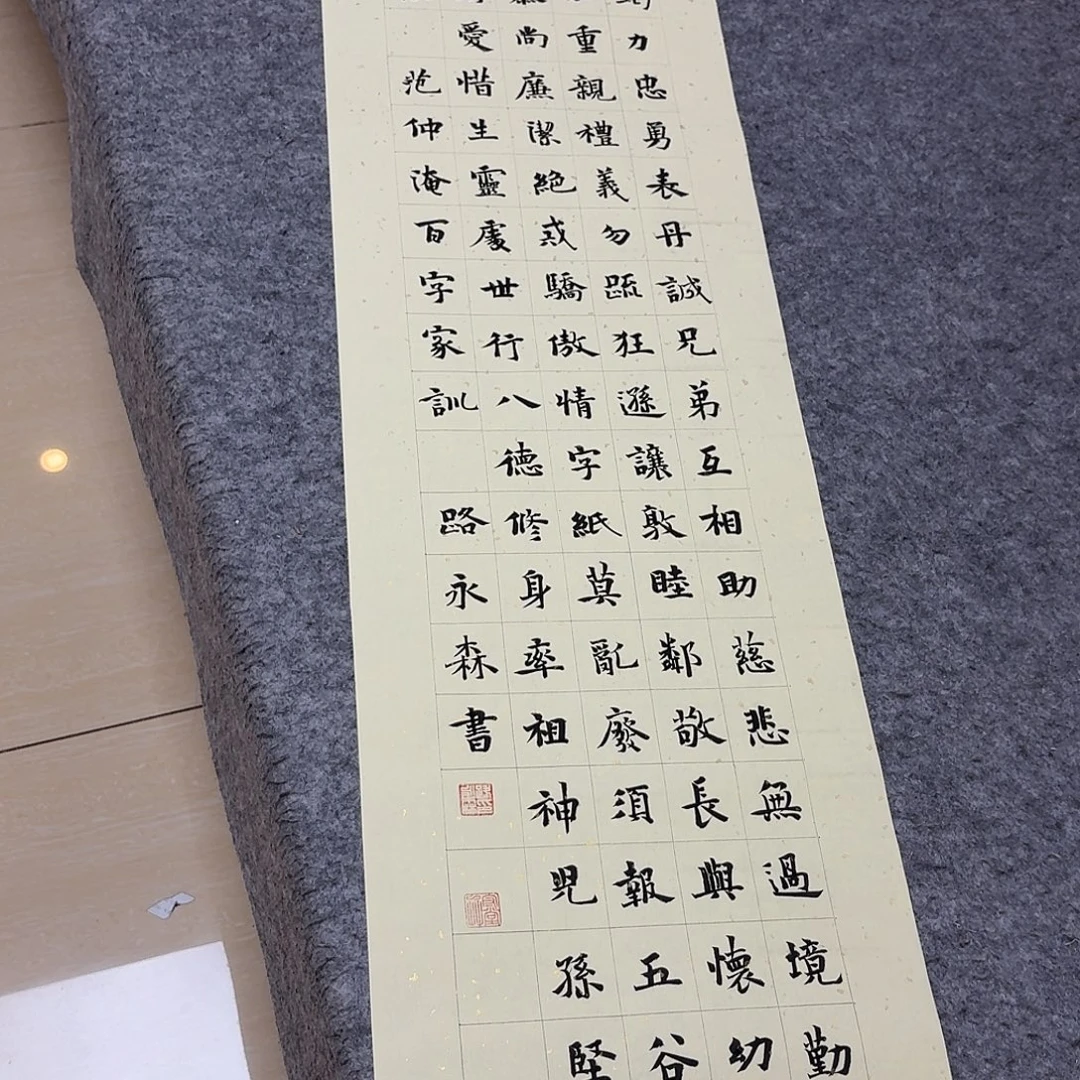 力忠勇表丹誠兄弟互相助慈悲無過境勤
重親禮義勿疏狂遜讓敦睦鄰敬長與懷幼
尚廉潔絕或驕傲情字紙莫亂廢須報五谷
愛惜生靈處世行八德修身率祖神兒孫堅
范仲淹百字家訓 路永森書